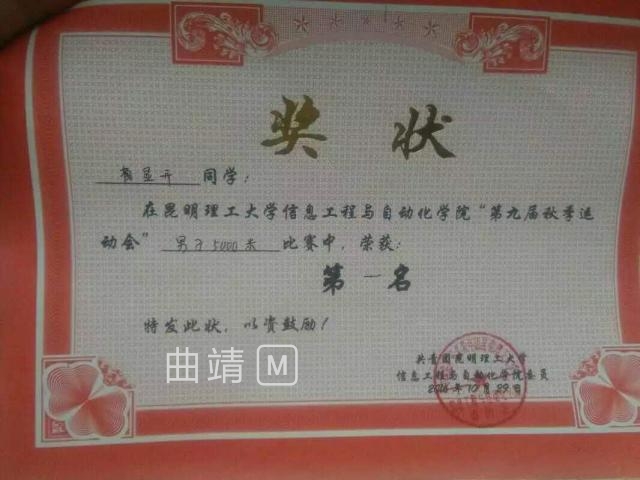 奖 状
显开 同学：
在昆明理工大学信息工程与自动化学院“第九届秋季运
动会” 男子5000米 比赛中，荣获：
第一名
特发此状，以资鼓励！
共青团昆明理工大学
信息工程与自动化学院委员
2016年10月29日
曲靖 M